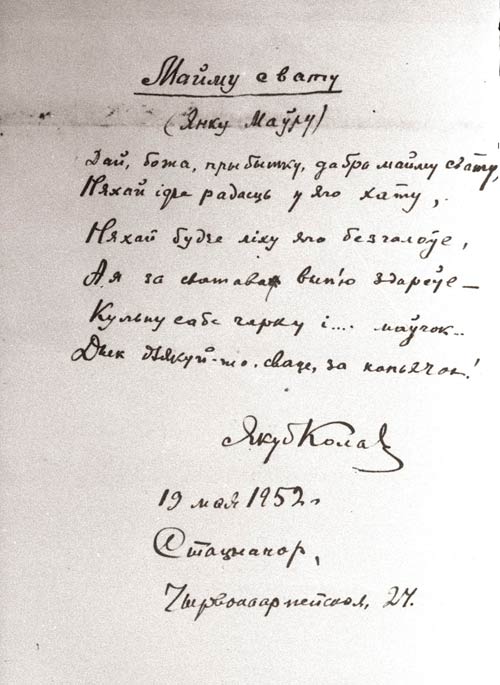 Майму свату
(Янку Маўру)
Дай, божа, прыбытку, дабра майму свату,
Няхай ідзе радасць у яго хату,
Няхай будзе ліху яго безгалоўе,
А я за сватава вып'ю здароўе –
Кульну сабе чарку і.... маўчок..
Дык дзякуй-жо, сваце, за коньячок!
Якуб Колас
19 мая 1952 г
Стацыянор,
Чырвонаармейская, 24.